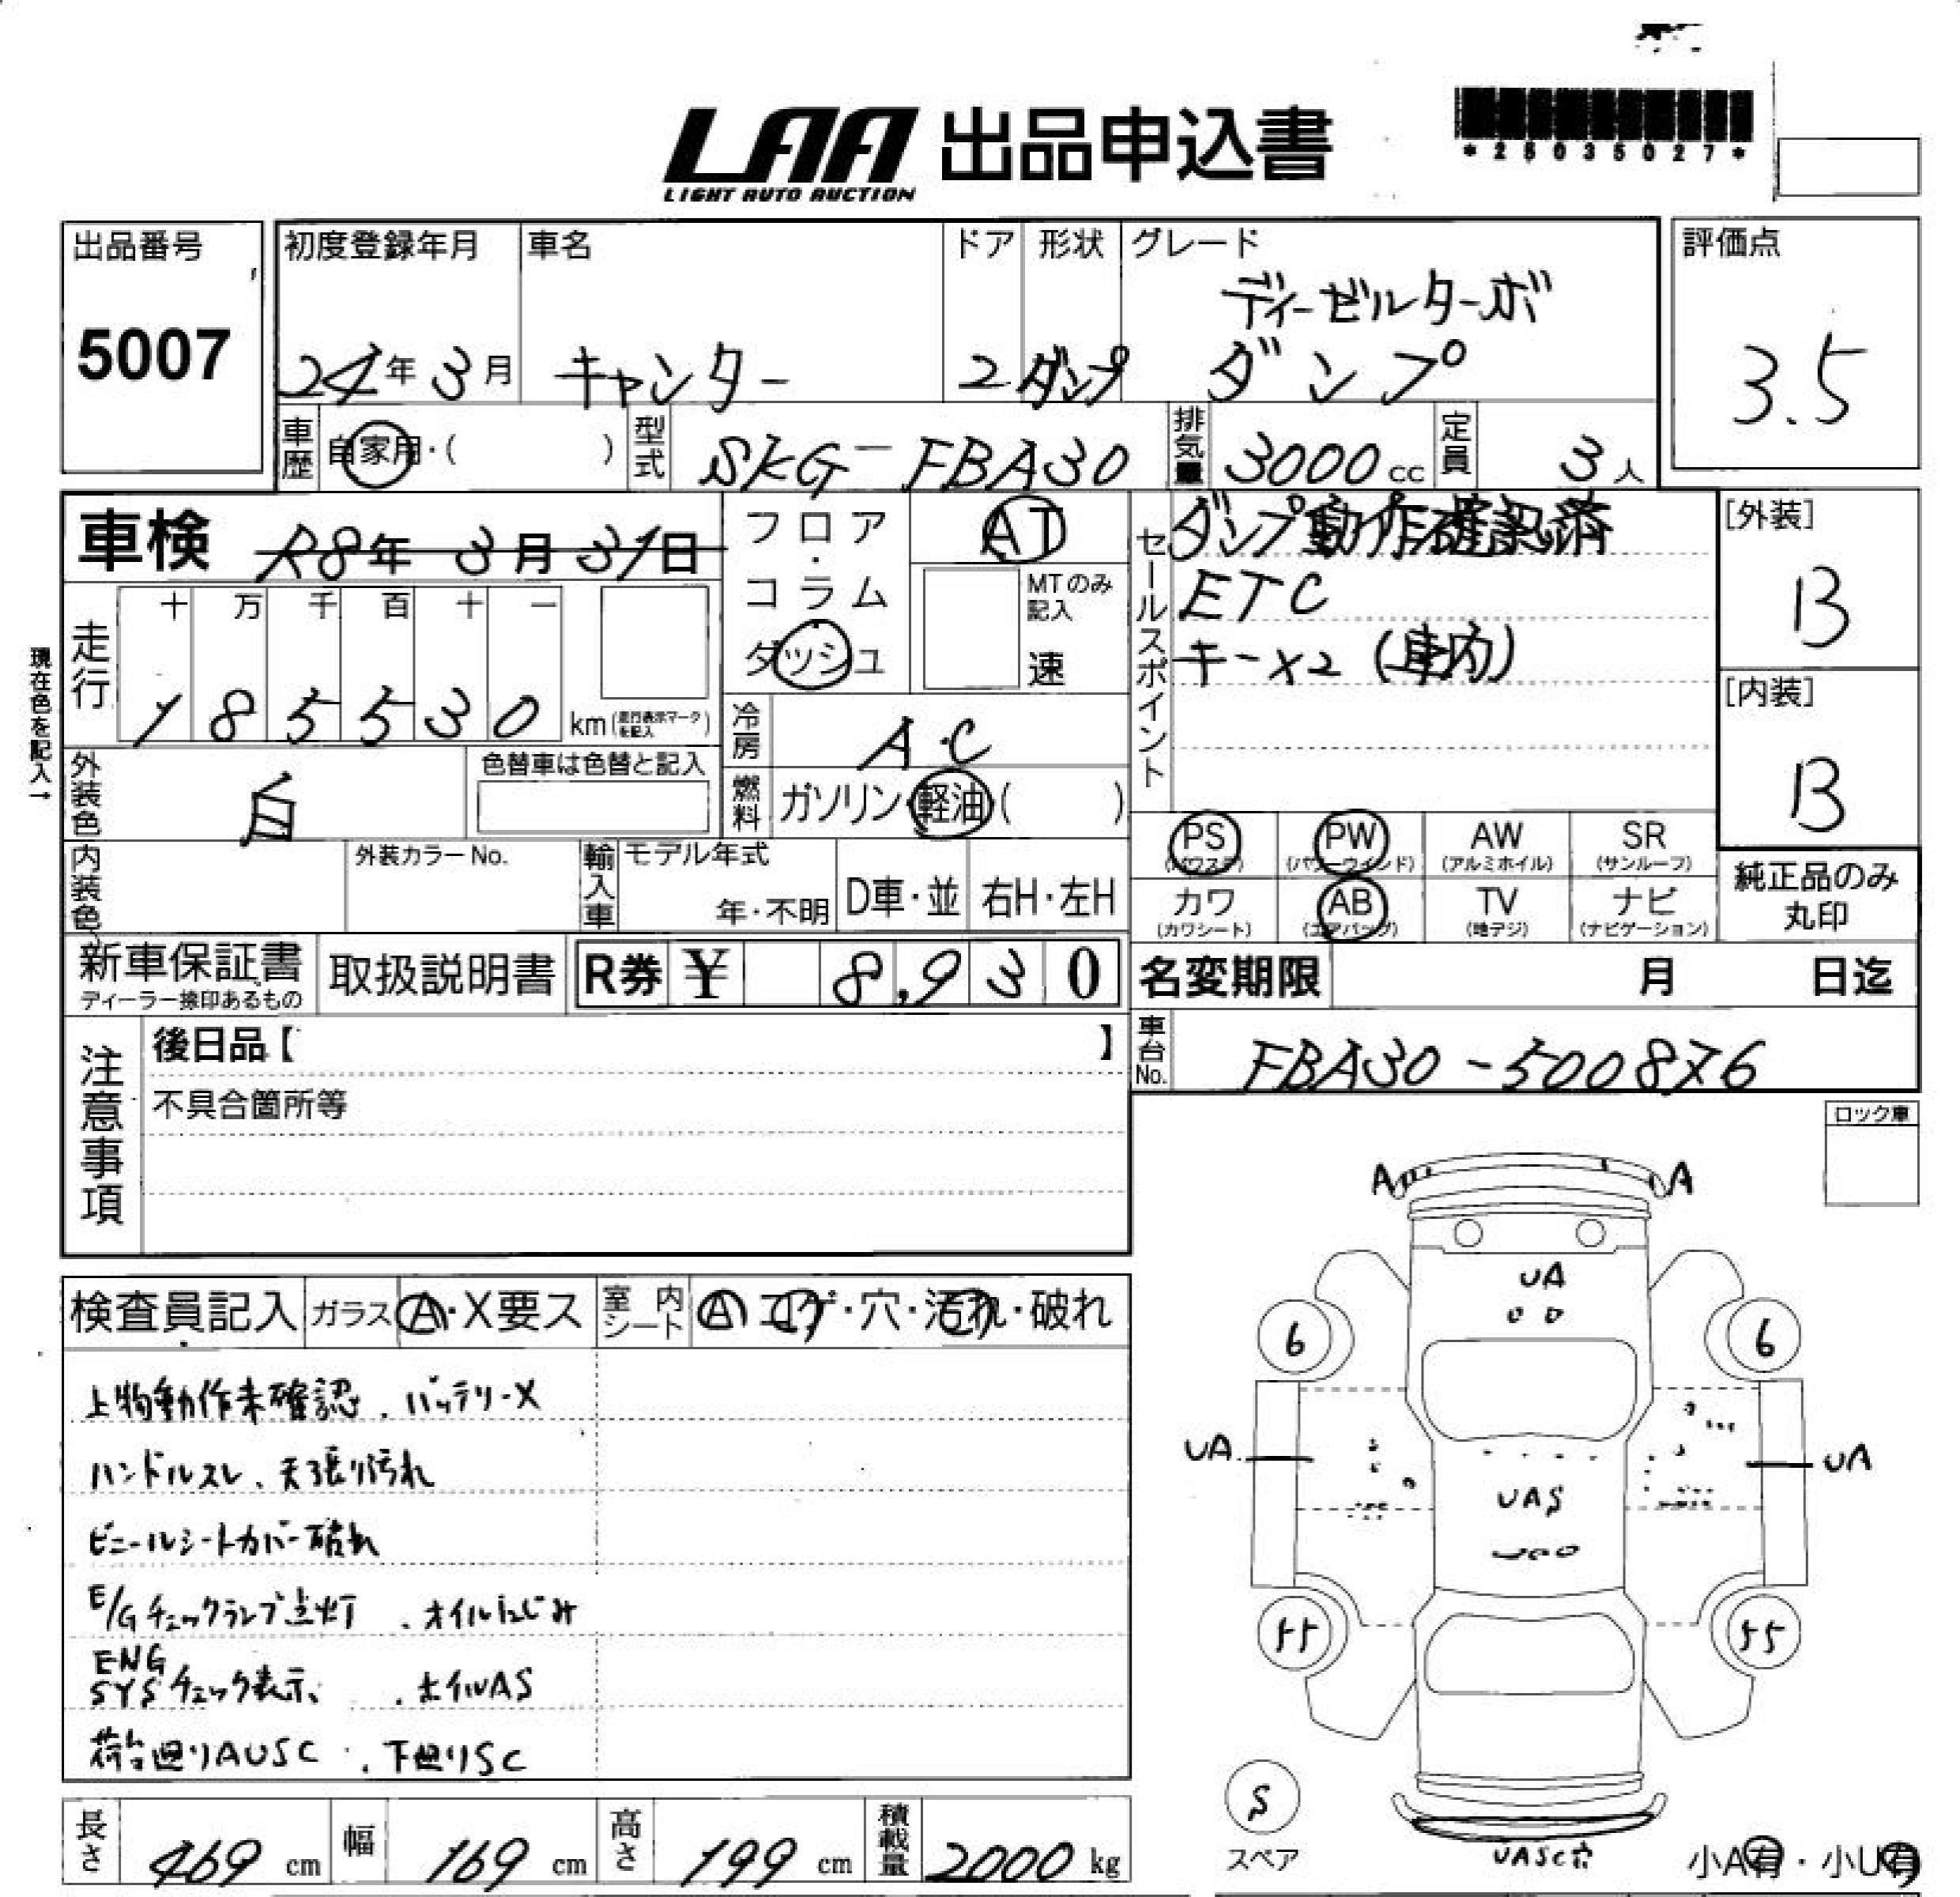 LAA 出品申込書
LIGHT AUTO AUCTION
*25035027*
出品番号
5007
初度登録年月
24年3月
車名
キャンター
ドア
2
形状
ダンプ
グレード
ディーゼルターボ
ダンプ
評価点
3.5
車歴
自家用・( )
型式
SKG-FBA30
排気量
3000cc
定員
3人
車検
R8年3月31日
フロア・コラム
ダッシュ
AT
MTのみ記入
速
セールスポイント
ダンプ動作確認済
ETC
キー×2 (車内)
[外装]
B
[内装]
B
現在色を記入→
走行
十万千百十一
185530
km(走行表示マークを記入)
冷房
A・C
燃料
ガソリン・軽油( )
外装色
白
色替車は色替と記入
内装色
外装カラーNo.
輸入車
モデル年式
年・不明
D車・並
右H・左H
PS
(パワステ)
PW
(パワーウィンド)
AW
(アルミホイル)
SR
(サンルーフ)
カワ
(カワシート)
AB
(エアバッグ)
TV
(地デジ)
ナビ
(ナビゲーション)
純正品のみ
丸印
新車保証書
ディーラー捺印あるもの
取扱説明書
R券 ¥ 8,930
名変期限 月 日迄
車台No.
FBA30-500876
注意事項
後日品【 】
不具合箇所等
ロック車
検査員記入
ガラス A・X要ス
室内シート A コゲ・穴・汚れ・破れ
上物動作未確認、バッテリーX
ハンドルスレ、天張り汚れ
ビニールシートカバー破れ
E/Gチェックランプ点灯 、オイルにじみ
ENG
SYSチェック表示、 、ホイルAS
荷台廻りAUSC 、下廻りSC
A A
UA
6 6
UA UA
UAS
55 55
S
スペア
UASC穴
小A有・小U有
長さ 469cm
幅 169cm
高さ 199cm
積載量 2000kg